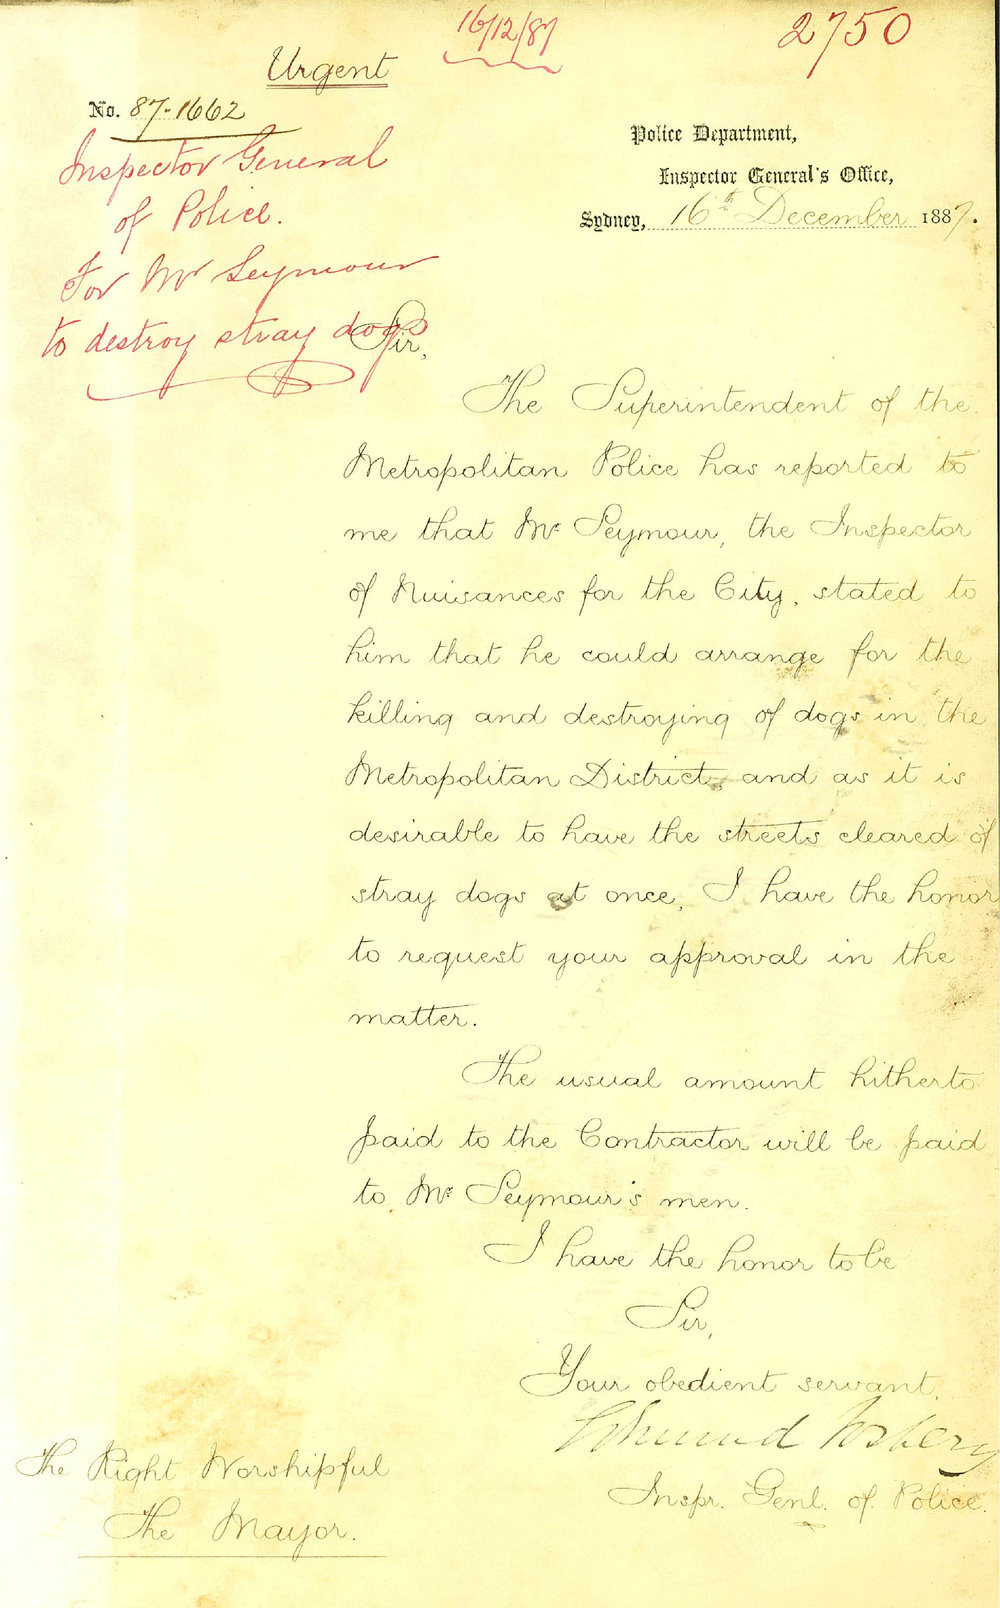 16/12/87
2750
Urgent
No. 87-1662
Inspector General
of Police.
For Mr Seymour
to destroy stray dogs
Police Department,
Inspector General's Office,
Sydney, 16th December 1887.
Sir,
The Superintendent of the
Metropolitan Police has reported to
me that Mr Seymour, the Inspector
of Nuisances for the City, stated to
him that he could arrange for the
killing and destroying of dogs in the
Metropolitan District, and as it is
desirable to have the streets cleared of
stray dogs at once, I have the honor
to request your approval in the
matter.
The usual amount hitherto
paid to the Contractor will be paid
to Mr Seymour's men.
I have the honor to be
Sir,
Your obedient servant,
Edmund Fosbery
Inspr. Genl. of Police.
The Right Worshipful
The Mayor.